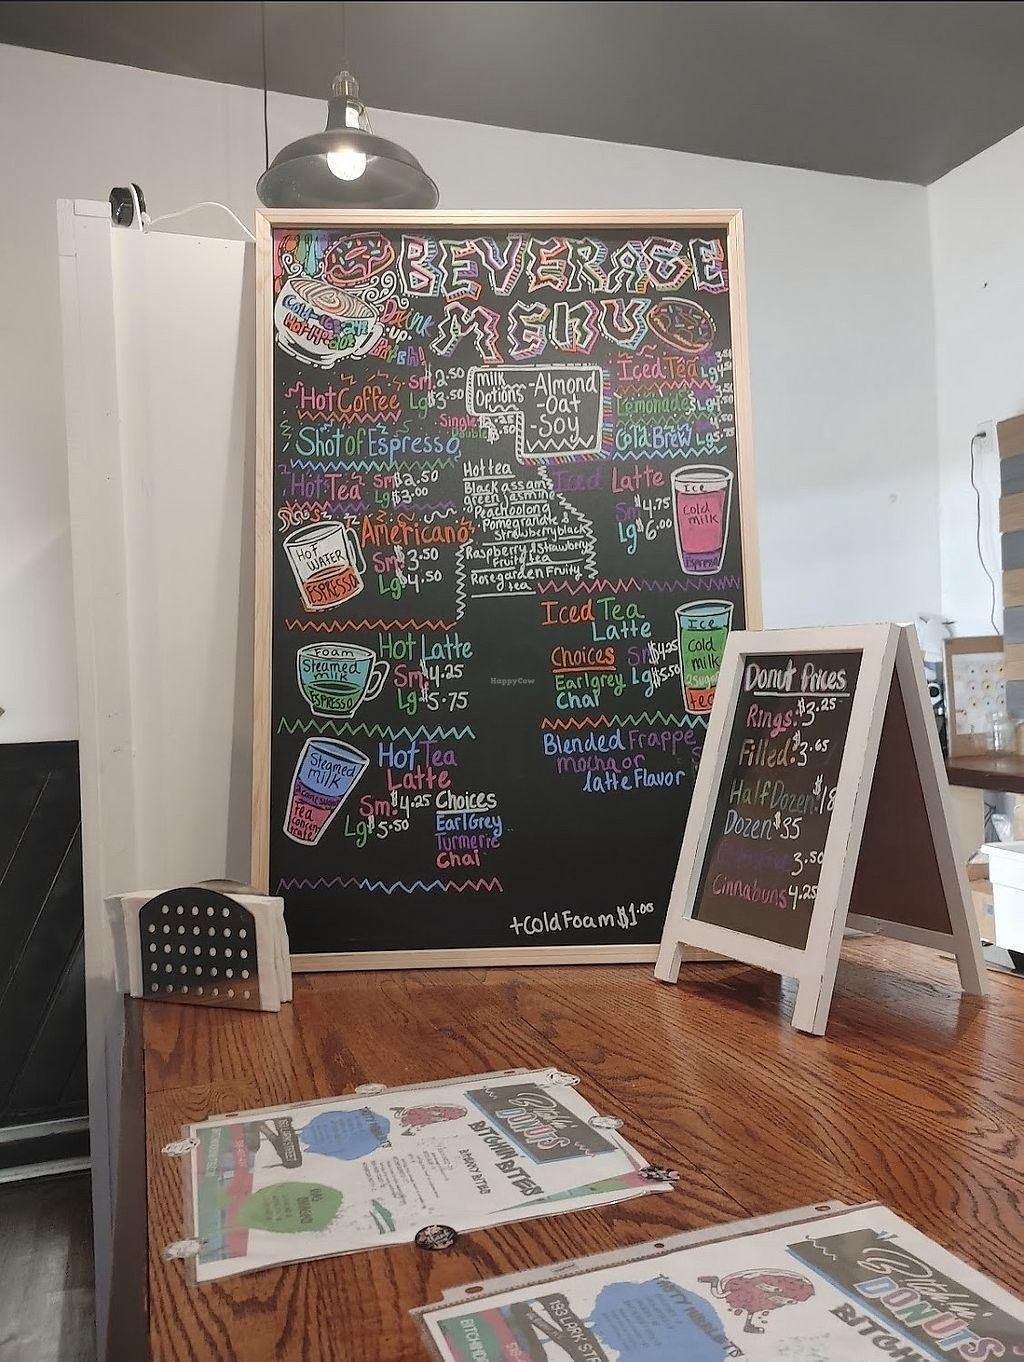 BEVERAGE
MENU
Drink
up
Bitch!
Hot Coffee Sm $2.50
Lg $3.50
Shot of Espresso
Single
Double
Hot Tea Sm $2.50
Lg $3.00
Americano
Sm $3.50
Lg $4.50
HOT
WATER
ESPRESSO
Hot Latte
Sm $4.25
Lg $5.75
FOAM
Steamed
milk
ESPRESSO
Hot Tea
Latte
Sm $4.25
Lg $5.50
Choices
Earl Grey
Turmeric
Chai
Steamed
milk
tea
concentrate
Milk
Options
-Almond
-Oat
-Soy
Hot tea
Black assam
Green jasmine
Peach oolong
Pomegranate &
Strawberry black
Raspberry & Strawberry
Fruity tea
Rose garden Fruity
tea
Iced Tea
Lemonade
Cold Brew
Iced Latte
Sm $4.75
Lg $6.00
Ice
Cold
milk
Espresso
Iced Tea
Latte
Choices
Earl grey
Chai
Sm $4.25
Lg $5.50
Ice
Cold
milk
tea
Blended Frappe
mocha or
latte Flavor
+Cold Foam $1.00
HappyCow
Donut Prices
Rings: $3.25
Filled: $3.65
Half Dozen: $18
Dozen $35
3.50
Cinnabuns 4.25
DONUTS
BITCHIN BITES
DONUTS